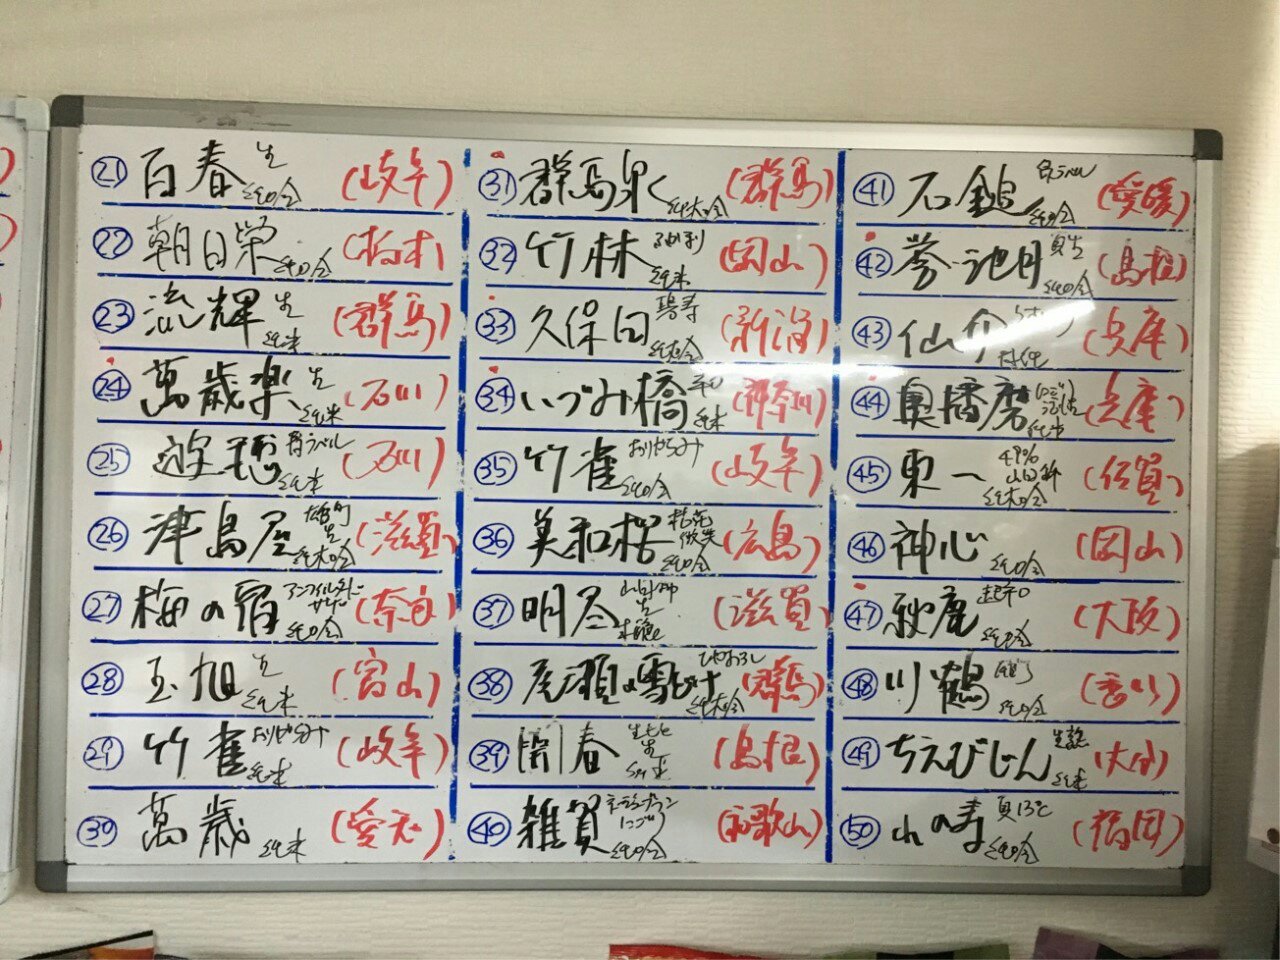 ㉑ 百春 生 純吟 (岐阜)
㉒ 朝日栄 純吟 (栃木)
㉓ 流輝 生 純米 (群馬)
㉔ 萬歳楽 生 純米 (石川)
㉕ 遊穂 青ラベル 純米 (石川)
㉖ 津島屋 雄町 生 純大吟 (滋賀)
㉗ 梅の宿 アンフィルタード サケ 純吟 (奈良)
㉘ 玉旭 生 純米 (富山)
㉙ 竹雀 おりがらみ 純米 (岐阜)
㉚ 萬歳 純米 (愛知)
㉛ 群馬泉 純大吟 (群馬)
㉜ 竹林 純米 (岡山)
㉝ 久保田 碧寿 純大吟 (新潟)
㉞ いづみ橋 純米 (神奈川)
㉟ 竹雀 おりがらみ 純吟 (岐阜)
㊱ 美和桜 純吟 (広島)
㊲ 明尽 山田錦 生 (滋賀)
㊳ 尾瀬の雪どけ ひやおろし 純大吟 (群馬)
㊴ 開春 生 純米 (島根)
㊵ 雑賀 にごり 純吟 (和歌山)
㊶ 石鎚 純吟 (愛媛)
㊷ 誉池月 純吟 (島根)
㊸ 仙介 特純 (兵庫)
㊹ 奥播磨 純米 (兵庫)
㊺ 東一 49% 山田錦 純大吟 (佐賀)
㊻ 神心 純吟 (岡山)
㊼ 秋鹿 純米 (大阪)
㊽ 川鶴 純吟 (香川)
㊾ ちえびじん 生 純米 (大分)
㊿ 山の寿 夏13℃ 純吟 (福岡)